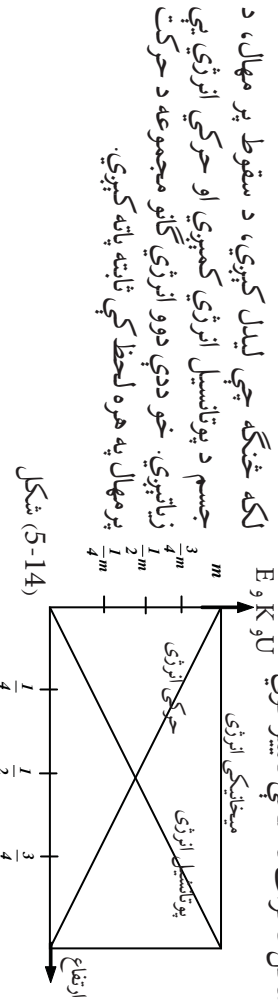 لکه څنګه چې لیدل کیږي، د سقوط پر مهال، د
جسم د پوتانسیل انرژي کمیږي او حرکي انرژي یې
زیاتیږي. خو ددې دوو انرژي ګانو مجموعه د حرکت
پرمهال په هره لحظه کې ثابته پاته کیږي.
E و K و U
میخانیکي انرژي
m
3/4 m
1/2 m
1/4 m
حرکي انرژي
پوتانسیل انرژي
1/4 1/2 3/4
ارتفاع
شکل (5-14)